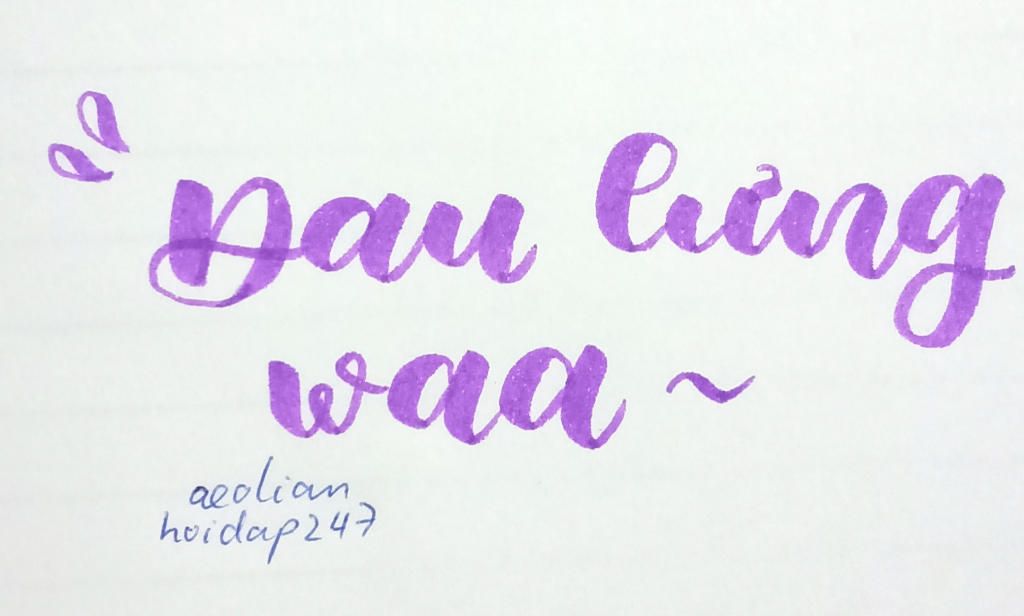 Đau lưng
waa ~
aeolian
hoidap247